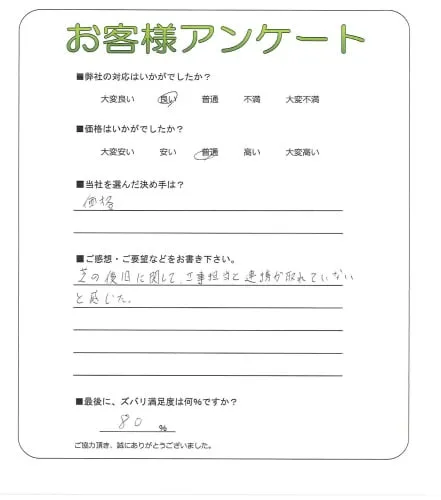 お客様アンケート
■弊社の対応はいかがでしたか？
大変良い 良い 普通 不満 大変不満
■価格はいかがでしたか？
大変安い 安い 普通 高い 大変高い
■当社を選んだ決め手は？
価格
■ご感想・ご要望などをお書き下さい。
芝の復旧に関して、工事担当と連携が取れていない
と感じた。
■最後に、ズバリ満足度は何％ですか？
80 %
ご協力頂き、誠にありがとうございました。